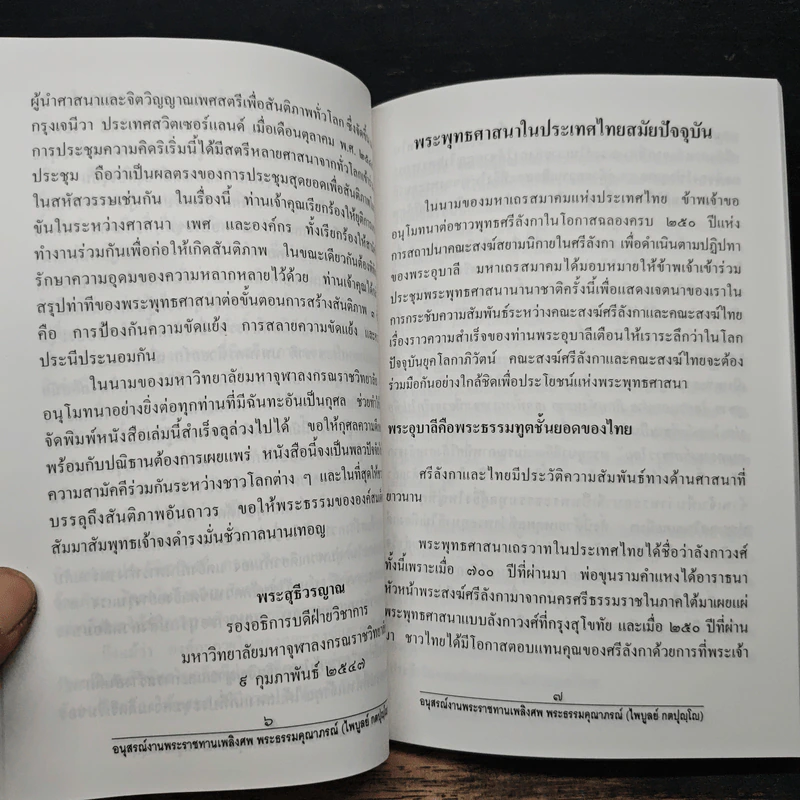 ผู้นำศาสนาและจิตวิญญาณเพศสตรีเพื่อสันติภาพทั่วโลก ซึ่งจัดขึ้น
กรุงเจนีวา ประเทศสวิตเซอร์แลนด์ เมื่อเดือนตุลาคม พ.ศ.
การประชุมความคิดริเริ่มนี้ได้มีสตรีหลายศาสนาจากทั่วโลกเข้า
ประชุม ถือว่าเป็นผลตรงของการประชุมสุดยอดเพื่อสันติภาพ
ในสหัสวรรษเช่นกัน ในเรื่องนี้ ท่านเจ้าคุณเรียกร้องให้ยุติการ
ขันในระหว่างศาสนา เพศ และองค์กร ทั้งเรียกร้องให้
ทำงานร่วมกันเพื่อก่อให้เกิดสันติภาพ ในขณะเดียวกันต้อง
รักษาความอุดมของความหลากหลายไว้ด้วย ท่านเจ้าคุณได้
สรุปท่าทีของพระพุทธศาสนาต่อขั้นตอนการสร้างสันติภาพ ๓
คือ การป้องกันความขัดแย้ง การสลายความขัดแย้ง และ
ประนีประนอมกัน
ในนามของมหาวิทยาลัยมหาจุฬาลงกรณราชวิทยาลัย
อนุโมทนาอย่างยิ่งต่อทุกท่านที่มีฉันทะอันเป็นกุศล ช่วยทำให้
จัดพิมพ์หนังสือเล่มนี้สำเร็จลุล่วงไปได้ ขอให้กุศลความดี
พร้อมกับปณิธานต้องการเผยแพร่ หนังสือนี้จงเป็นพลวปัจจัย
ความสามัคคีร่วมกันระหว่างชาวโลกต่าง ๆ และในที่สุดให้
บรรลุถึงสันติภาพอันถาวร ขอให้พระธรรมขององค์สมเด็จ
สัมมาสัมพุทธเจ้าจงดำรงมั่นชั่วกาลนานเทอญ
พระสุธีวรญาณ
รองอธิการบดีฝ่ายวิชาการ
มหาวิทยาลัยมหาจุฬาลงกรณราชวิทยาลัย
๙ กุมภาพันธ์ ๒๕๔๗
๖
อนุสรณ์งานพระราชทานเพลิงศพ พระธรรมคุณาภรณ์ (ไพบูลย์ กตปุญฺโญ)
พระพุทธศาสนาในประเทศไทยสมัยปัจจุบัน
ในนามของมหาเถรสมาคมแห่งประเทศไทย ข้าพเจ้าขอ
อนุโมทนาต่อชาวพุทธศรีลังกาในโอกาสฉลองครบ ๒๕๐ ปีแห่ง
การสถาปนาคณะสงฆ์สยามนิกายในศรีลังกา เพื่อดำเนินตามปฏิปทา
ของพระอุบาลี มหาเถรสมาคมได้มอบหมายให้ข้าพเจ้าเข้าร่วม
ประชุมพระพุทธศาสนานานาชาติครั้งนี้เพื่อแสดงเจตนาของเราใน
การกระชับความสัมพันธ์ระหว่างคณะสงฆ์ศรีลังกาและคณะสงฆ์ไทย
เรื่องราวความสำเร็จของท่านพระอุบาลีเตือนให้เราระลึกว่าในโลก
ปัจจุบันยุคโลกาภิวัตน์ คณะสงฆ์ศรีลังกาและคณะสงฆ์ไทยจะต้อง
ร่วมมือกันอย่างใกล้ชิดเพื่อประโยชน์แห่งพระพุทธศาสนา
พระอุบาลีคือพระธรรมทูตชั้นยอดของไทย
ศรีลังกาและไทยมีประวัติความสัมพันธ์ทางด้านศาสนาที่
ยาวนาน
พระพุทธศาสนาเถรวาทในประเทศไทยได้ชื่อว่าลังกาวงศ์
ทั้งนี้เพราะเมื่อ ๗๐๐ ปีที่ผ่านมา พ่อขุนรามคำแหงได้อาราธนา
หัวหน้าพระสงฆ์ศรีลังกามาจากนครศรีธรรมราชในภาคใต้มาเผยแผ่
พระพุทธศาสนาแบบลังกาวงศ์ที่กรุงสุโขทัย และเมื่อ ๒๕๐ ปีที่ผ่าน
มา ชาวไทยได้มีโอกาสตอบแทนคุณของศรีลังกาด้วยการที่พระเจ้า
๗
อนุสรณ์งานพระราชทานเพลิงศพ พระธรรมคุณาภรณ์ (ไพบูลย์ กตปุญฺโญ)